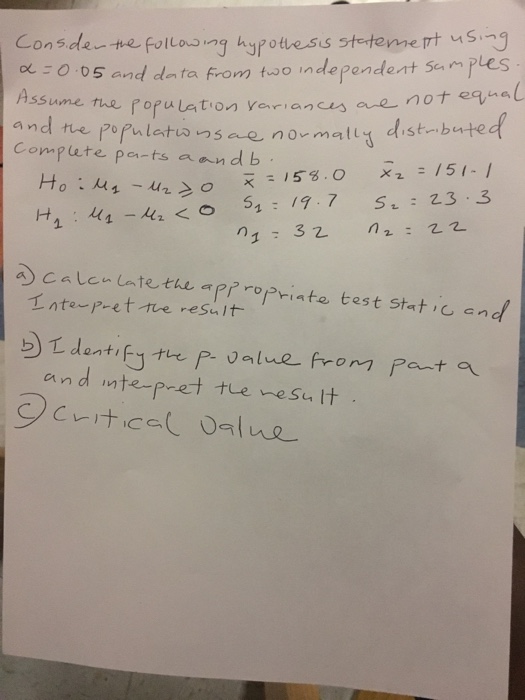 Consider the following hypothesis statement using
α = 0.05 and data from two independent samples.
Assume the population variances are not equal
and the populations are normally distributed
Complete parts a and b.
H₀ : μ₁ - μ₂ ⩾ 0 x̄ = 158.0 x̄₂ = 151.1
H₁ : μ₁ - μ₂ < 0 S₁ = 19.7 S₂ = 23.3
n₁ = 32 n₂ = 22
a) Calculate the appropriate test static and
Interpret the result
b) Identify the p-value from part a
and interpret the result.
c) Critical Value